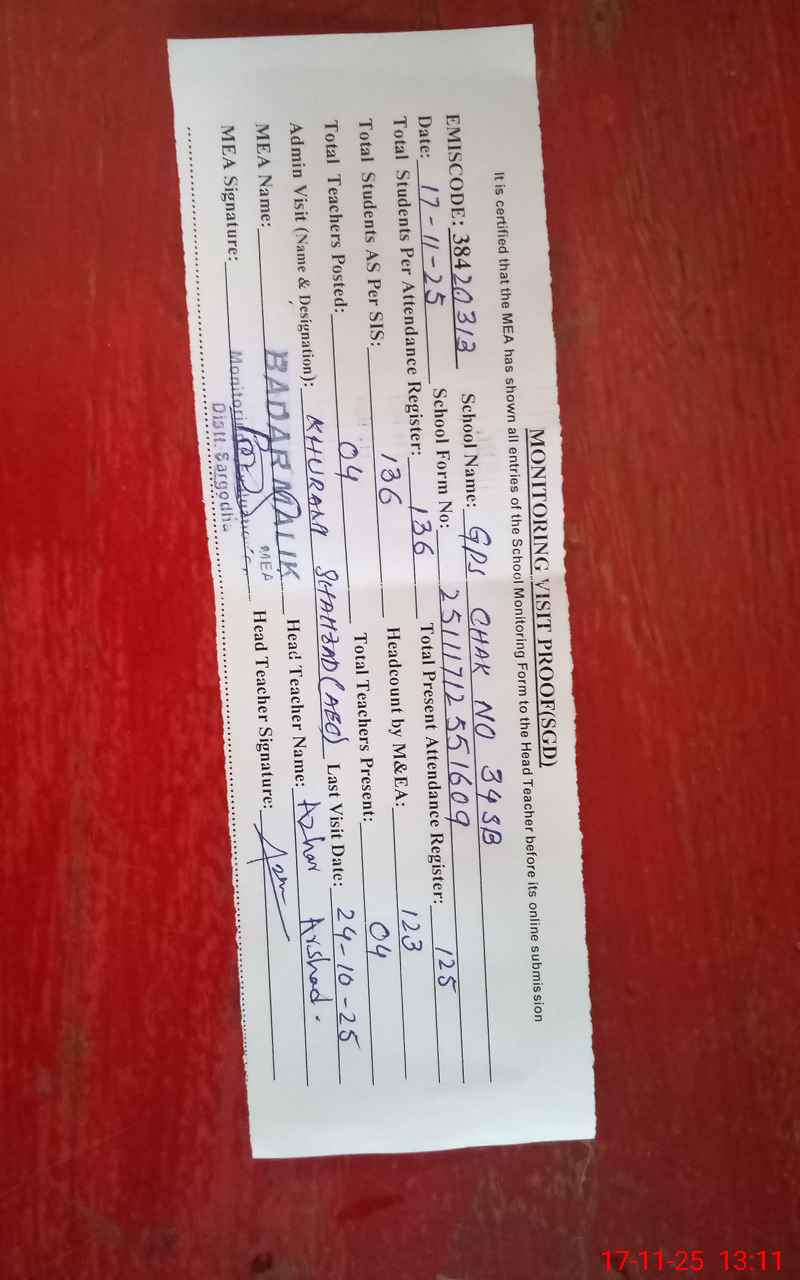 MONITORING VISIT PROOF(SGD)
It is certified that the MEA has shown all entries of the School Monitoring Form to the Head Teacher before its online submission
EMISCODE: 38420313 School Name: GPS CHAK NO 34SB
Date: 17-11-25 School Form No: 2511171255 1609
Total Students Per Attendance Register: 136 Total Present Attendance Register: 125
Total Students AS Per SIS: 136 Headcount by M&EA: 123
Total Teachers Posted: 04 Total Teachers Present: 04
Admin Visit (Name & Designation): KHURAM SHAHZAD (AEO) Last Visit Date: 24-10-25
MEA Name: BADAR MALIK MEA Head Teacher Name: Azhar Arshad.
MEA Signature: Head Teacher Signature:
Distt. Sargodha
17-11-25 13:11